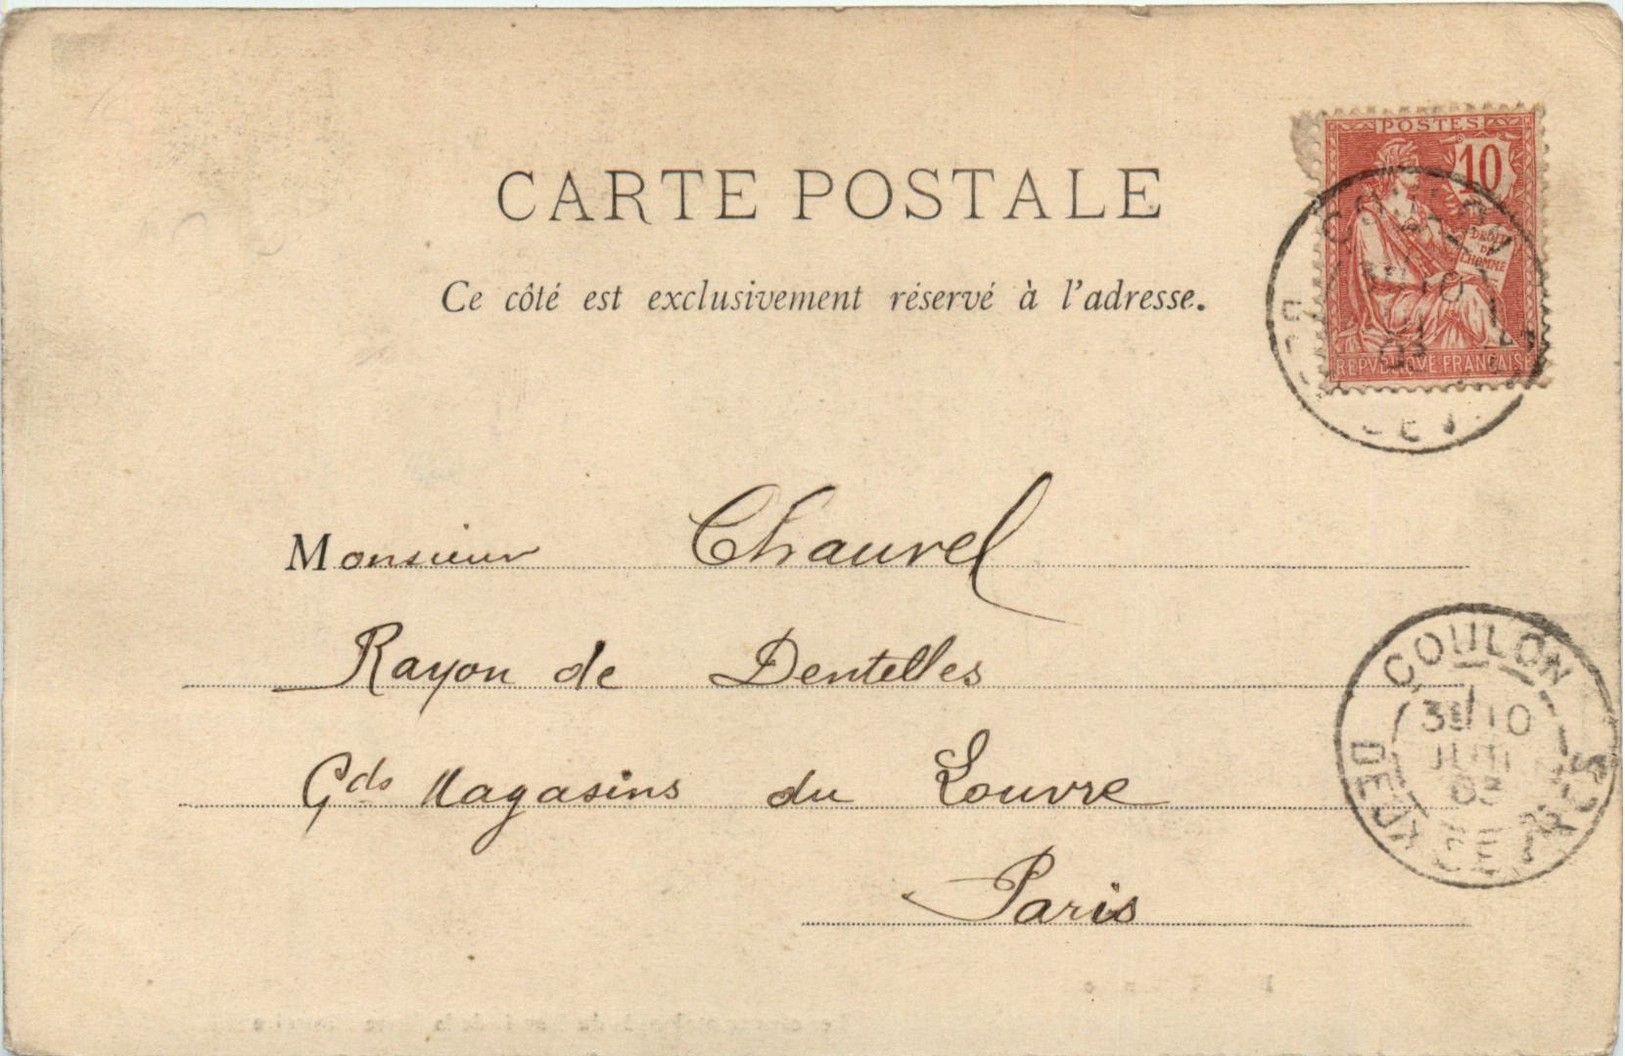 CARTE POSTALE
Ce côté est exclusivement réservé à l'adresse.
POSTES
10
DROITS
DE
L'HOMME
REPVBLIQVE FRANÇAISE
Monsieur Chauvel
Rayon de Dentelles
Gds Magasins du Louvre
Paris
COULON
10
03
DEUX